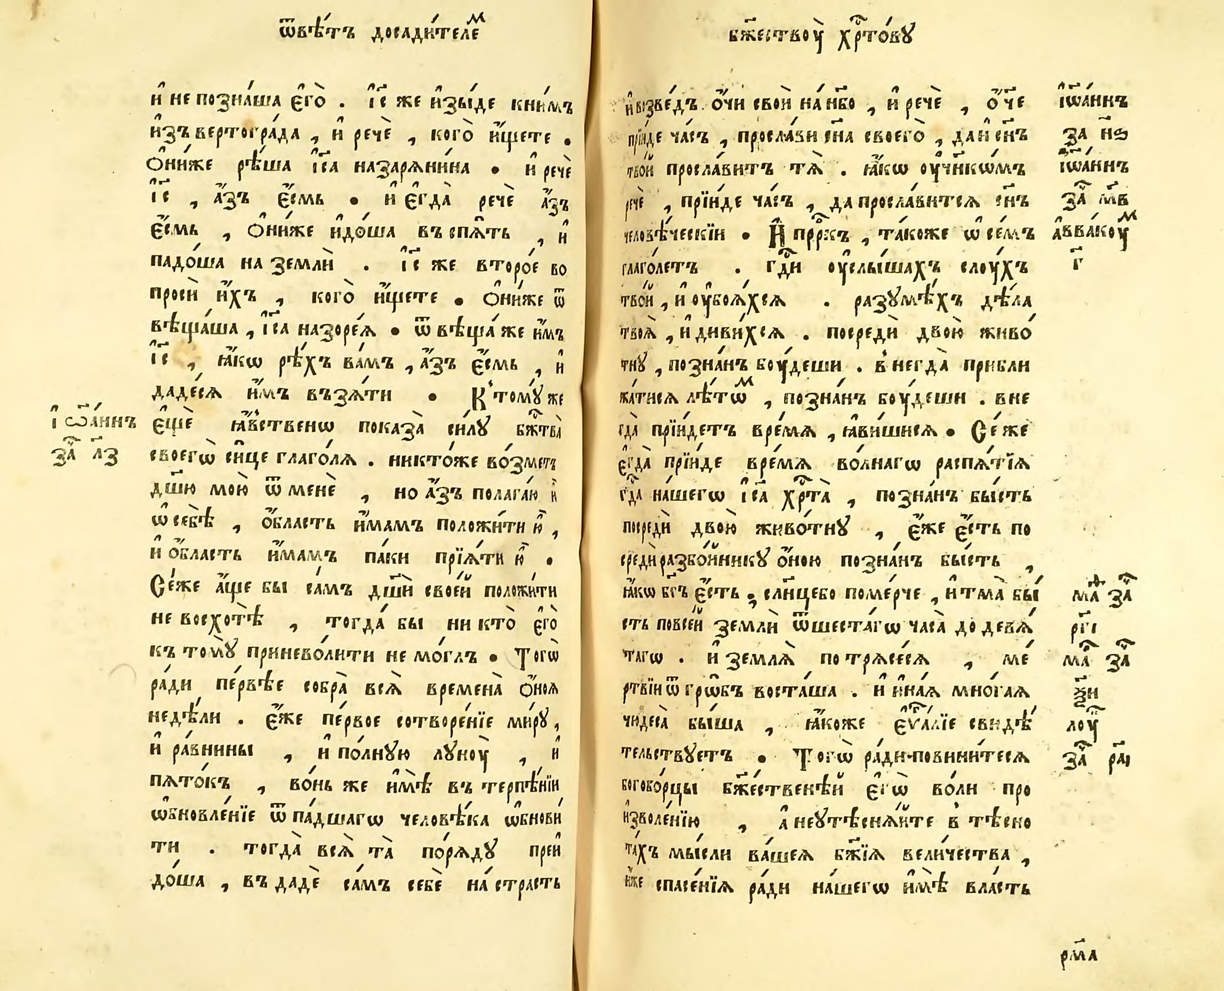 ѿвѣ́тъ досади́телеⷨ
и҆ не позна́ша є҆го̀ . і҆с҃ же и҆зы́де кни́мъ
и҆зъ вертогра́да , и҆ речѐ , кого̀ и҆́щете .
Ѻ҆ни́же рѣ́ша і҆с҃а назаряни́на . и҆ речѐ
і҆с҃ , а҆́зъ є҆́смь . и҆ є҆гда̀ речѐ а҆́зъ
є҆́смь , ѻ҆ни́же и҆до́ша въ спѧ́ть , и҆
падо́ша на землѝ . і҆с҃ же второ́е во
просѝ и҆́хъ , кого̀ и҆́щете . Ѻ҆ни́же ѿ
вѣща́ша , і҆с҃а назоре́ѧ . ѿ вѣща́ же и҆́мъ
і҆с҃ , ꙗ҆́кѡ рѣ́хъ ва́мъ , а҆́зъ є҆́смь , и҆
даде́сѧ и҆́мъ възѧ́ти . К̾ тому́ же
і҆ѡа́ннъ
за҄ л҃з
є҆щѐ ꙗ҆́вственѡ показа̀ си́лꙋ бж҃тва̀
своегѡ̀ си́це глаго́лѧ . никто́же во́зметъ
дш҃ю мою̀ ѿ менѐ , но а҆́зъ полага́ю ю҆̀
ѡ҆ себѣ̀ , ѻ҆́бласть и҆́мамъ положи́ти ю҆̀ ,
и҆ ѻ҆́бласть и҆́мамъ па́ки прїѧ́ти ю҆̀ .
Се́же а҆́ще бы са́мъ дш҃и свое́й положи́ти
не восхотѣ̀ , тогда́ бы ни кто̀ є҆го̀
къ томꙋ̀ приневоли́ти не мо́глъ . Тогѡ̀
ра́ди пе́рвѣе собра̀ всѧ̀ времена̀ ѻ҆́ноѧ
недѣ́ли . є҆́же пе́рвое сотворе́нїе ми́рꙋ ,
и҆ равнины̀ , и҆ по́лную лꙋноу̀ , и҆
пѧто́къ , во́нь же и҆мѣ̀ въ терпѣ́нїи
ѡ҆бновле́нїе ѿ па́дшагѡ человѣ́ка ѡ҆бнови́
ти . тогда̀ всѧ̀ та̀ порѧ́дꙋ преи
до́ша , въ дадѐ са́мъ себѐ на́ страсть
бж҃ествоу̀ хрⷭ҇то́вꙋ
и҆ възве́дъ ѻ҆́чи свои̑ на́ нб҃о , и҆ речѐ , ѻ҆́ч҃е
прїи́де ча́съ , просла́ви сн҃а своего̀ , да и҆ сн҃ъ
тво́й просла́витъ тѧ̀ . ꙗ҆́кѡ оу҆чн҃кѡ́мъ
речѐ , прїи́де ча́съ , да просла́витсѧ сн҃ъ
человѣ́ческїи . И҆ прⷪ҇ркъ , та́коже ѡ҆ се́мъ
глаго́летъ . гд҃и оу҆слы́шахъ слоу́хъ
тво́й , и҆ оу҆боѧ́хсѧ . разꙋмѣ́хъ дѣ́ла
твоѧ̀ , и҆ диви́хсѧ . посредѝ двою̀ живо́
тнꙋ , позна́нъ боу́деши . в̾негда̀ прибли
жа́тисѧ лѣ́тѡⷨ , позна́нъ боу́деши . вне
гда̀ прїи́детъ вре́мѧ , ꙗ҆ви́шисѧ . Се́же
є҆гда̀ прїи́де вре́мѧ во́лнагѡ распѧ́тїѧ
гд҃а на́шегѡ і҆с҃а хрⷭ҇та̀ , позна́нъ бы́сть
посредѝ двою̀ живо́тнꙋ , є҆́же є҆́сть по
средѝ разбо́йникꙋ ѻ҆́ною позна́нъ бы́сть ,
ꙗ҆́кѡ бг҃ъ є҆́сть . сл҃нцебо поме́рче , и҆ тма̀ бы́
сть повсе́й землѝ ѿ шеста́гѡ часа̀ до девѧ́
тагѡ . и҆ землѧ̀ потрѧсе́сѧ , ме́
ртвїи ѿ грѡ́бъ воста́ша . и҆ и҆на́ѧ мно́гаѧ
чꙋдеса̀ бы́ша , ꙗ҆́коже є҆ѵⷢ҇а́лїе свидѣ́
тельствꙋетъ . Тогѡ̀ ра́ди повини́тесѧ
богобо́рцы бж҃е́ственѣй є҆гѡ̀ во́ли про
изволе́нїю , а҆ неутѣснѧ́йте в̾ тѣ́сно
та́хъ мы́сли ва́шеѧ бж҃їѧ вели́чества ,
и҆́же спасе́нїѧ ра́ди на́шегѡ и҆мѣ̀ вла́сть
і҆ѡа́ннъ
за҄ н҃э
і҆ѡа́ннъ
за҄ м҃в
а҆ввакоуⷨ
г҃
маⷴ за҄
р҃гі
маⷴ за҄
ѯ҃и
лоу
за҄ р҃аі
рм҃а